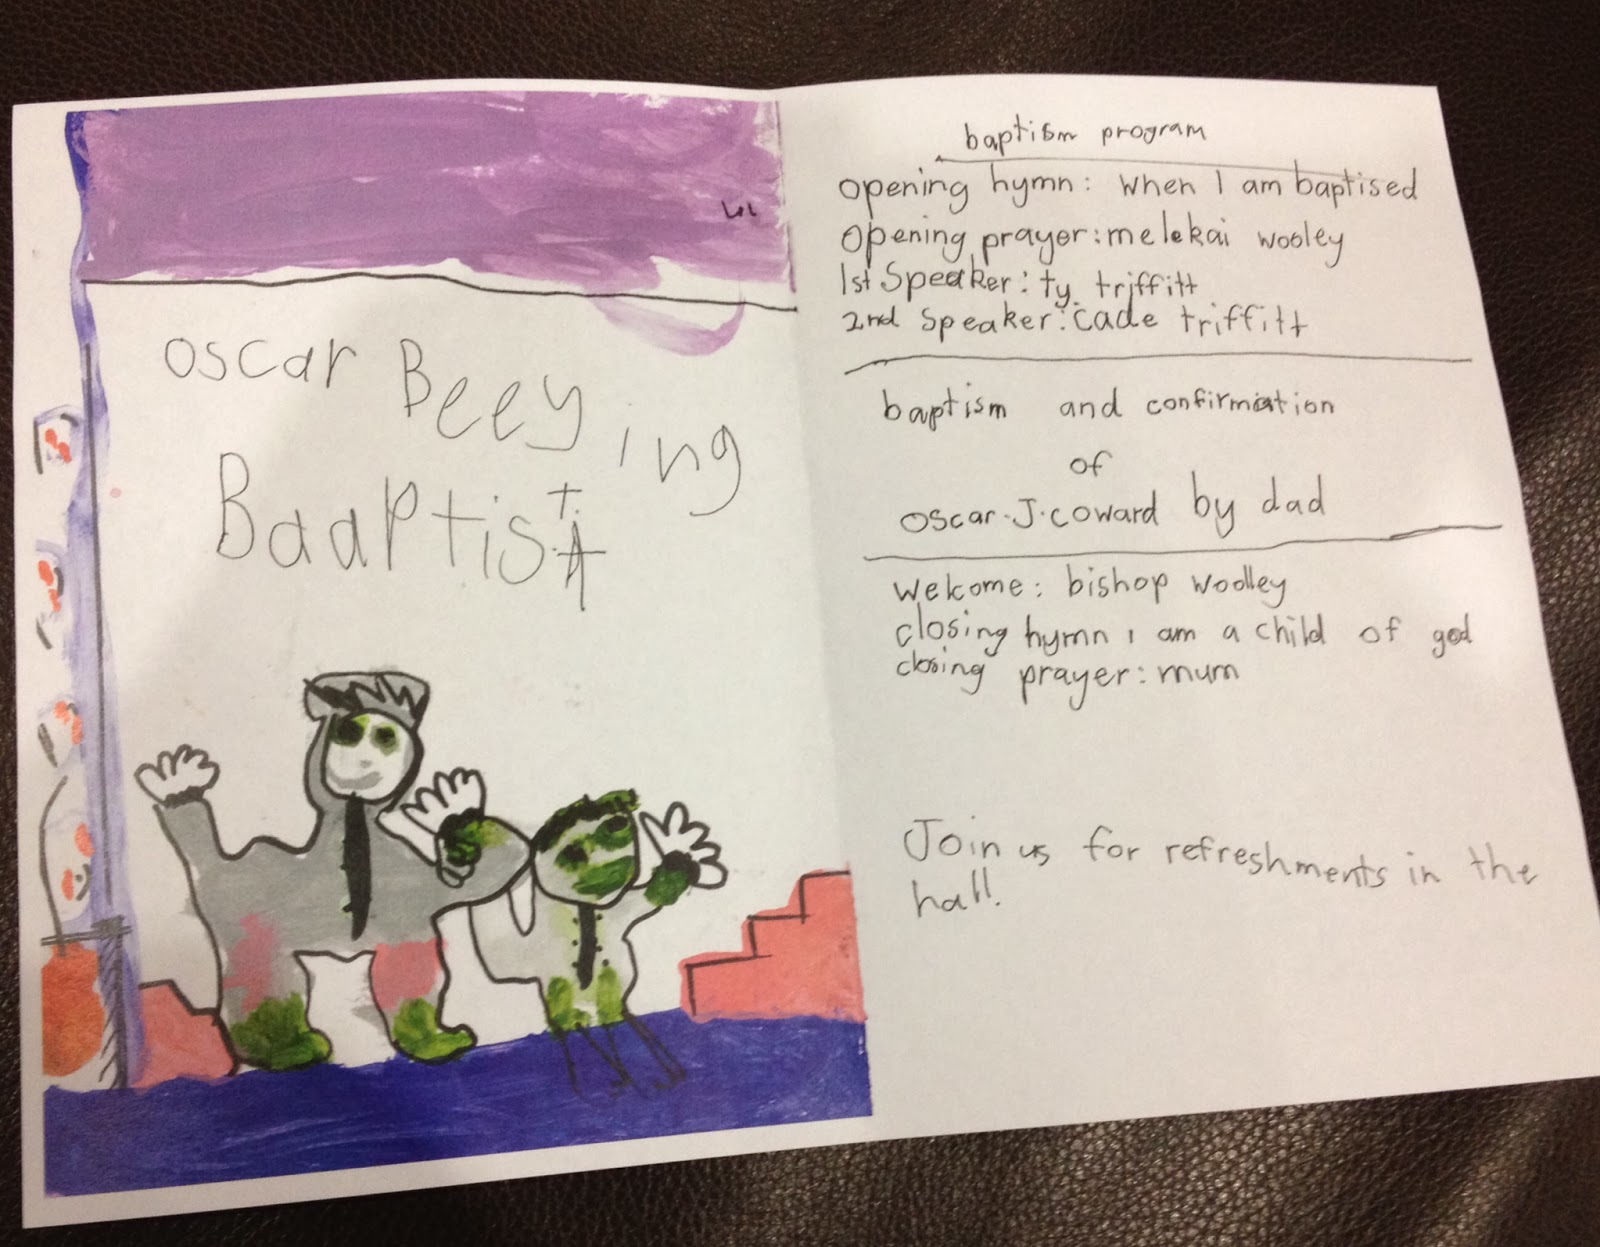 oscar Beeying
Baaptist
baptism program
opening hymn: when I am baptised
opening prayer: melekai wooley
1st Speaker: ty triffitt
2nd Speaker: cade triffitt
baptism and confirmation
of
oscar.J.coward by dad
welcome: bishop woolley
closing hymn i am a child of god
closing prayer: mum
Join us for refreshments in the
hall.